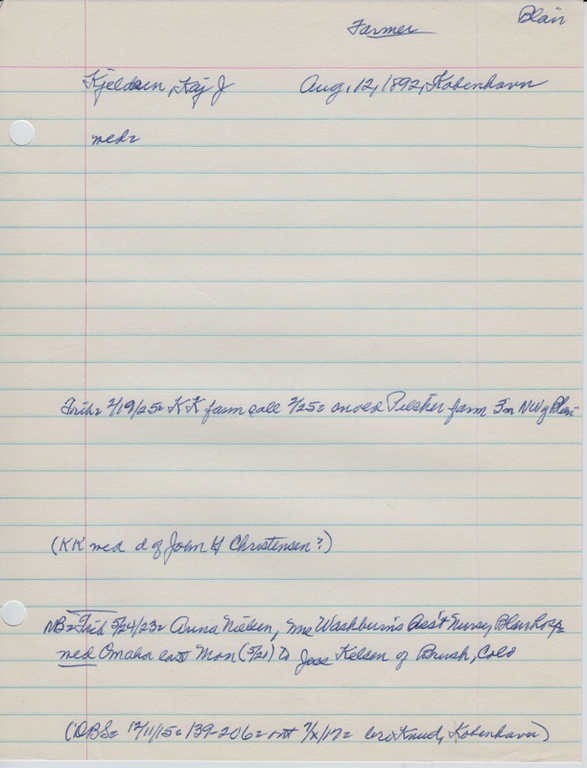 Blair
Farmer
Kjeldsen, Kaj J Aug, 12, 1892, Kobenhavn
med=
Trib= 2/19/25= KK farm sale 2/25= on old Pilcher farm 5m NW of Blair
(KK med d of John H Christensen?)
NB= Trib 5/24/23= Anna Nielsen, Ms Washburn's Ass't Nurse, Blair Hosp=
med Omaha last Mon (5/21) to Jess Kelsen of Brush, Colo
(DBS= 12/11/15= 139-206= 7/x/17= bro Knud, Kobenhavn)